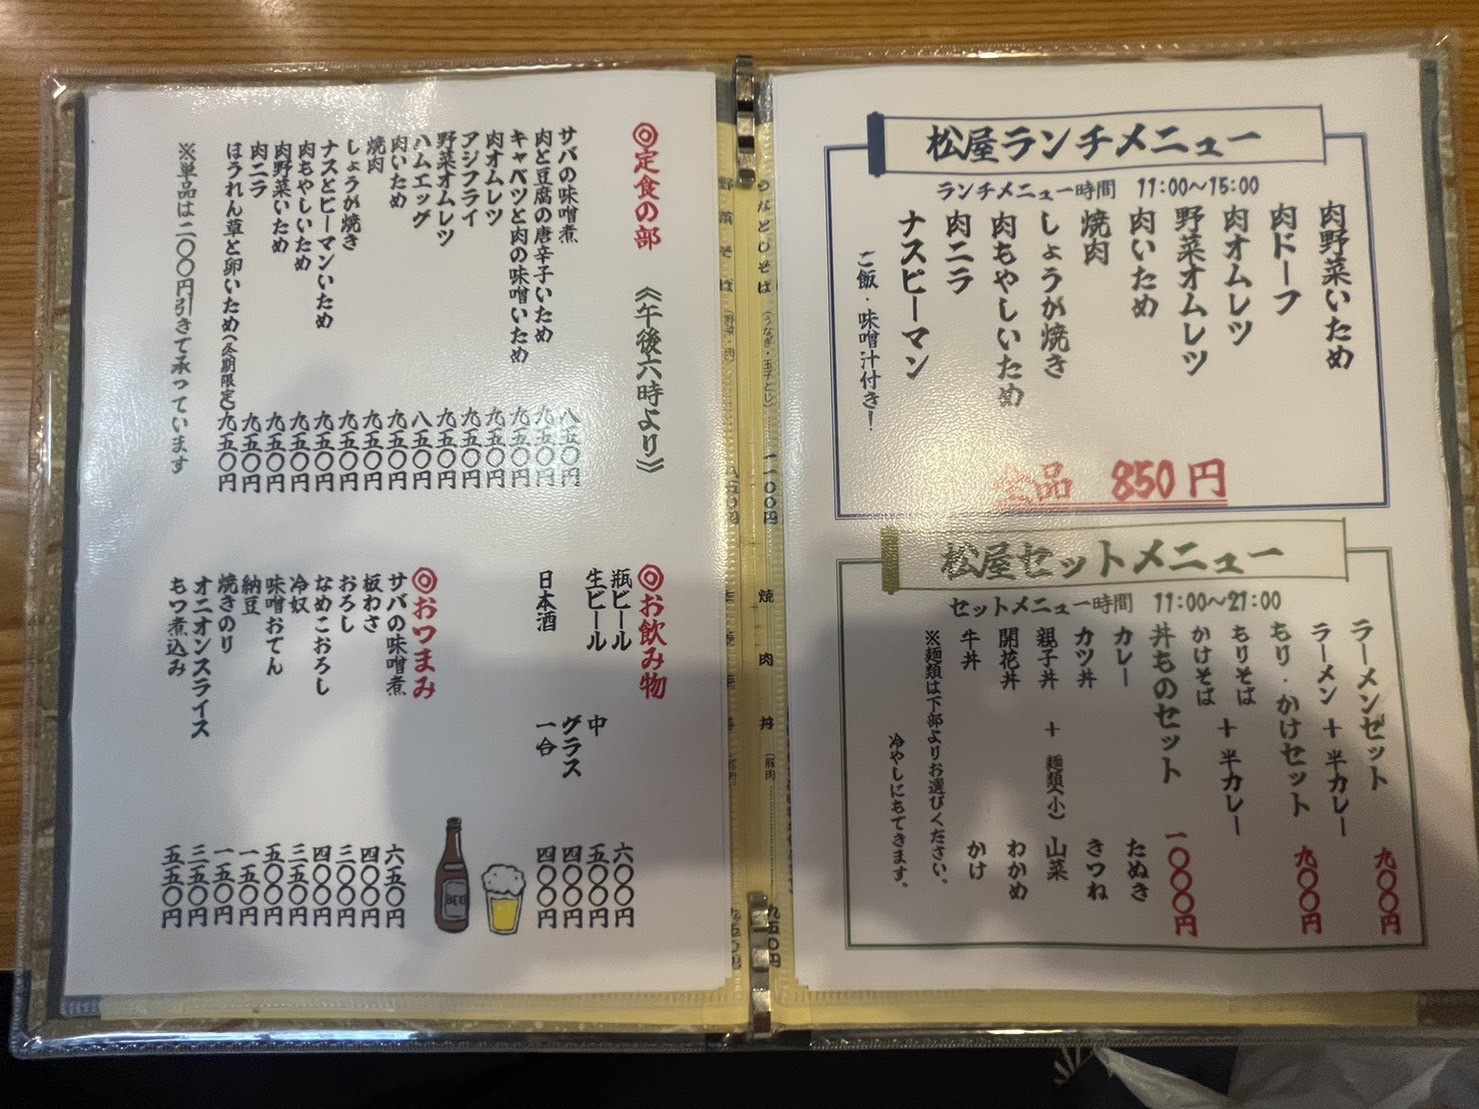 松屋ランチメニュー
ランチメニュー時間 11:00～15:00
肉野菜いため
肉ドーフ
肉オムレツ
野菜オムレツ
肉いため
焼肉
しょうが焼き
肉もやしいため
肉ニラ
ナスピーマン
ご飯・味噌汁付き!
全品 850円
松屋セットメニュー
セットメニュー時間 11:00～21:00
ラーメンセット 九〇〇円
ラーメン + 半カレー
もり・かけセット 九〇〇円
もりそば
かけそば
+ 半カレー
丼ものセット 一〇〇〇円
カレー
カツ丼
親子丼
開花丼
牛丼
+ 麺類(小)
たぬき
きつね
山菜
わかめ
かけ
※麺類は下部よりお選びください。
冷やしにもできます。
うなとじそば(うなぎ・玉子とじ) 一一〇〇円
焼肉丼
九五〇円
◎定食の部 《午後六時より》
サバの味噌煮 八五〇円
肉と豆腐の唐辛子いため 九五〇円
キャベツと肉の味噌いため 九五〇円
肉オムレツ 九五〇円
アジフライ 九五〇円
野菜オムレツ 九五〇円
ハムエッグ 八五〇円
肉いため 九五〇円
焼肉 九五〇円
しょうが焼き 九五〇円
ナスとピーマンいため 九五〇円
肉もやしいため 九五〇円
肉野菜いため 九五〇円
肉ニラ 九五〇円
ほうれん草と卵いため(冬期限定) 九五〇円
※単品は二〇〇円引きで承っています
◎お飲み物
瓶ビール 六〇〇円
生ビール 中 五〇〇円
グラス 四〇〇円
日本酒 一合 四〇〇円
◎おつまみ
サバの味噌煮 六五〇円
板わさ 四〇〇円
おろし 三〇〇円
なめこおろし 四〇〇円
冷奴 三五〇円
味噌おでん 五〇〇円
納豆 一五〇円
焼きのり 一五〇円
オニオンスライス 三五〇円
もつ煮込み 五五〇円